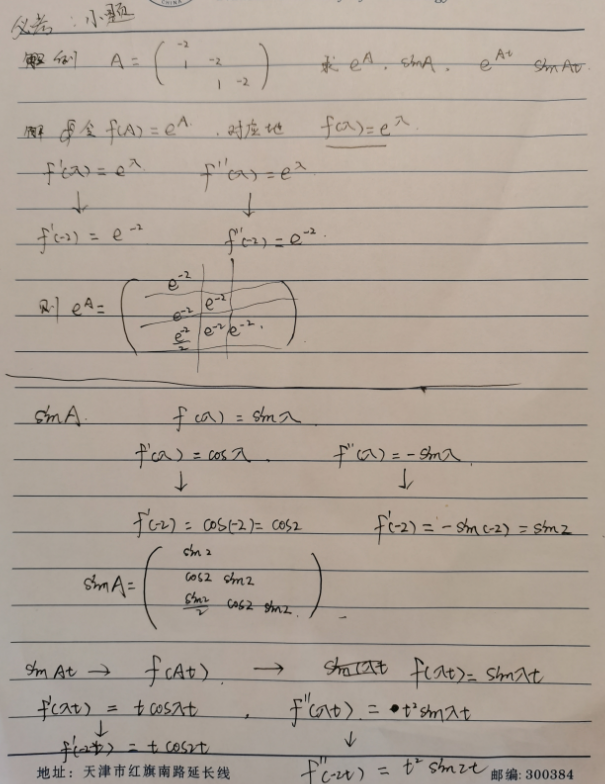 必考：小题
解 例 A = ( -2 1 -2 1 -2 ) 求 e^A . sinA . e^{At} sinAt
解 令 f(A) = e^A . 对应地 f(λ) = e^λ
f'(λ) = e^λ f''(λ) = e^λ
↓ ↓
f'(-2) = e^{-2} f''(-2) = e^{-2} .
则 e^A = ( e^{-2} e^{-2} e^{-2} e^{-2}/2 e^{-2} e^{-2} . )
sinA . f(λ) = sinλ
f'(λ) = cosλ . f''(λ) = -sinλ
↓ ↓
f'(-2) = cos(-2) = cos2 f'(-2) = -sin(-2) = sin2
sinA = ( sin2 cos2 sin2 sin2/2 cos2 sin2 )
sinAt → f(At) → f(λt) = sinλt
f'(λt) = t cosλt , f''(λt) = t² sinλt
↓ ↓
f'(-2t) = t cos2t
f''(-2t) = t² sin2t
地址：天津市红旗南路延长线 邮编: 300384